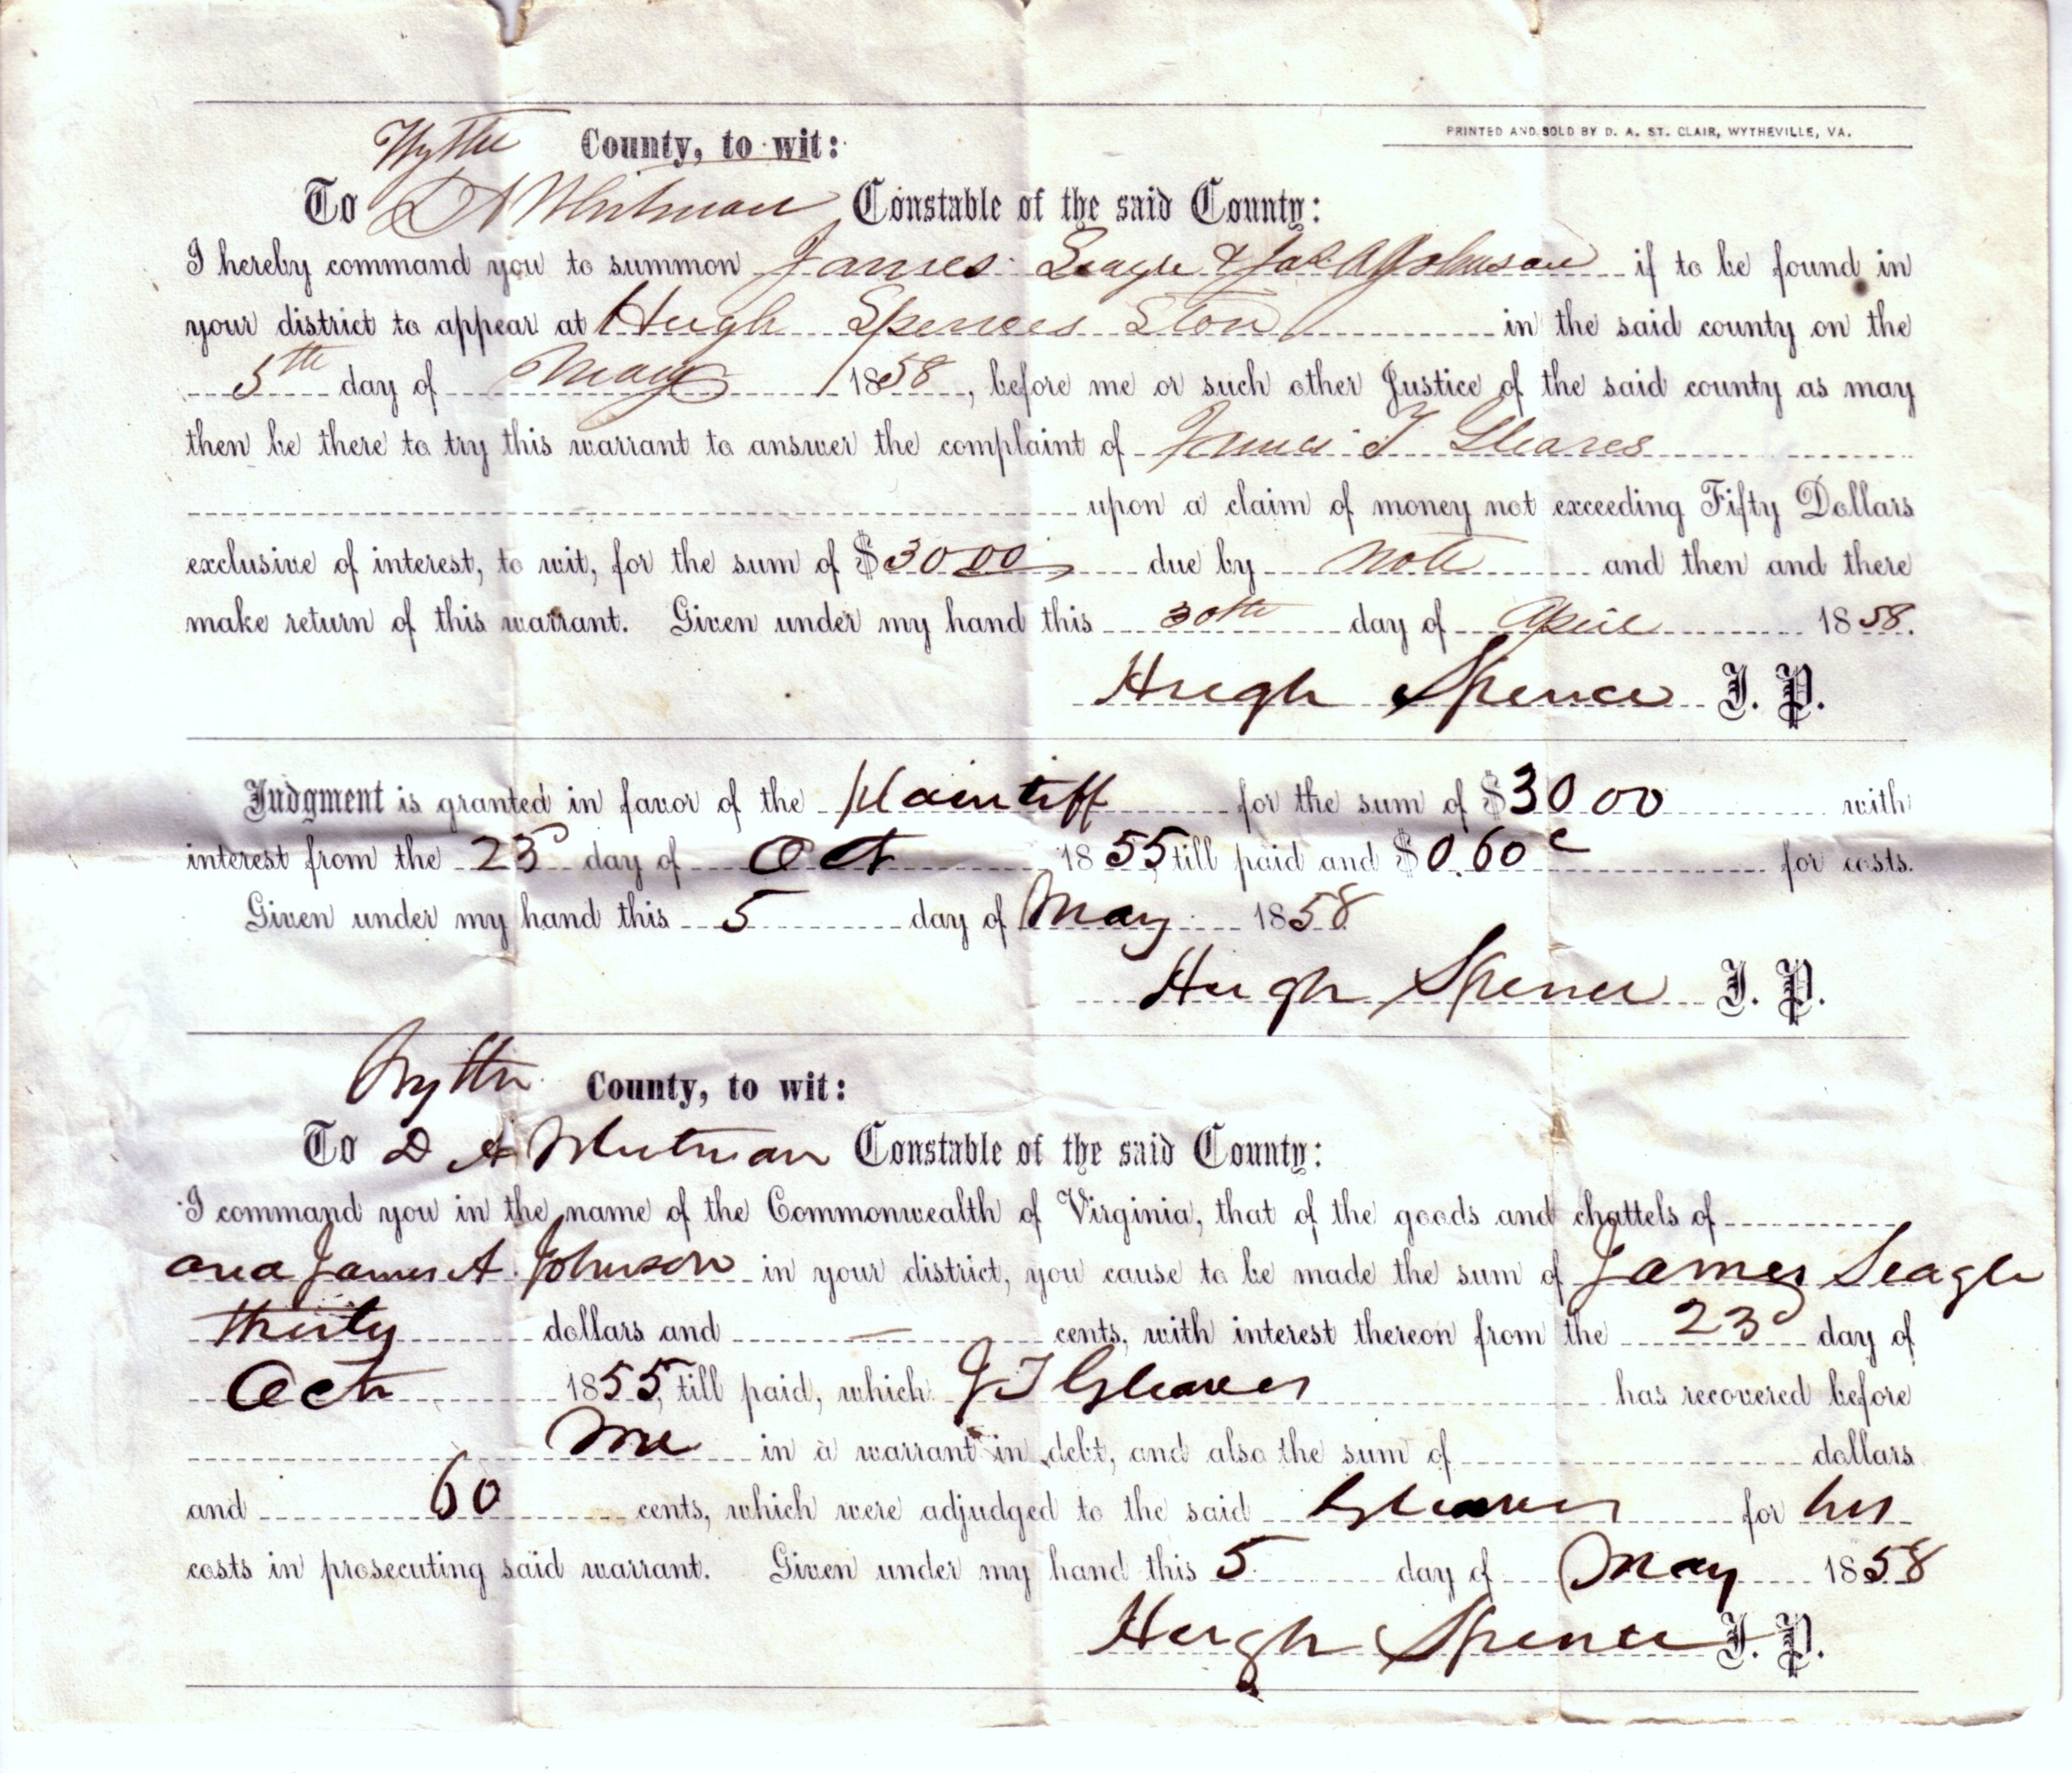 PRINTED AND SOLD BY D. A. ST. CLAIR, WYTHEVILLE, VA.
Wythe County, to wit:
To D A Whitman Constable of the said County:
I hereby command you to summon James Seagle & Jas A Johnson if to be found in
your district to appear at Hugh Spences Store in the said county on the
5th day of May 1858, before me or such other Justice of the said county as may
then be there to try this warrant to answer the complaint of James T Gleaves
upon a claim of money not exceeding Fifty Dollars
exclusive of interest, to wit, for the sum of $30 00 due by note and then and there
make return of this warrant. Given under my hand this 30th day of April 1858.
Hugh Spence J. P.
Judgment is granted in favor of the plaintiff for the sum of $30 00 with
interest from the 23d day of Oct 1855 till paid and $0.60c for costs.
Given under my hand this 5 day of May 1858
Hugh Spence J. P.
Wythe County, to wit:
To D A Whitman Constable of the said County:
I command you in the name of the Commonwealth of Virginia, that of the goods and chattels of
and James A Johnson in your district, you cause to be made the sum of James Seagle
thirty dollars and — cents, with interest thereon from the 23d day of
Oct 1855, till paid, which J T Gleaves has recovered before
me in a warrant in debt, and also the sum of dollars
and 60 cents, which were adjudged to the said Gleaves for his
costs in prosecuting said warrant. Given under my hand this 5 day of May 1858
Hugh Spence J. P.